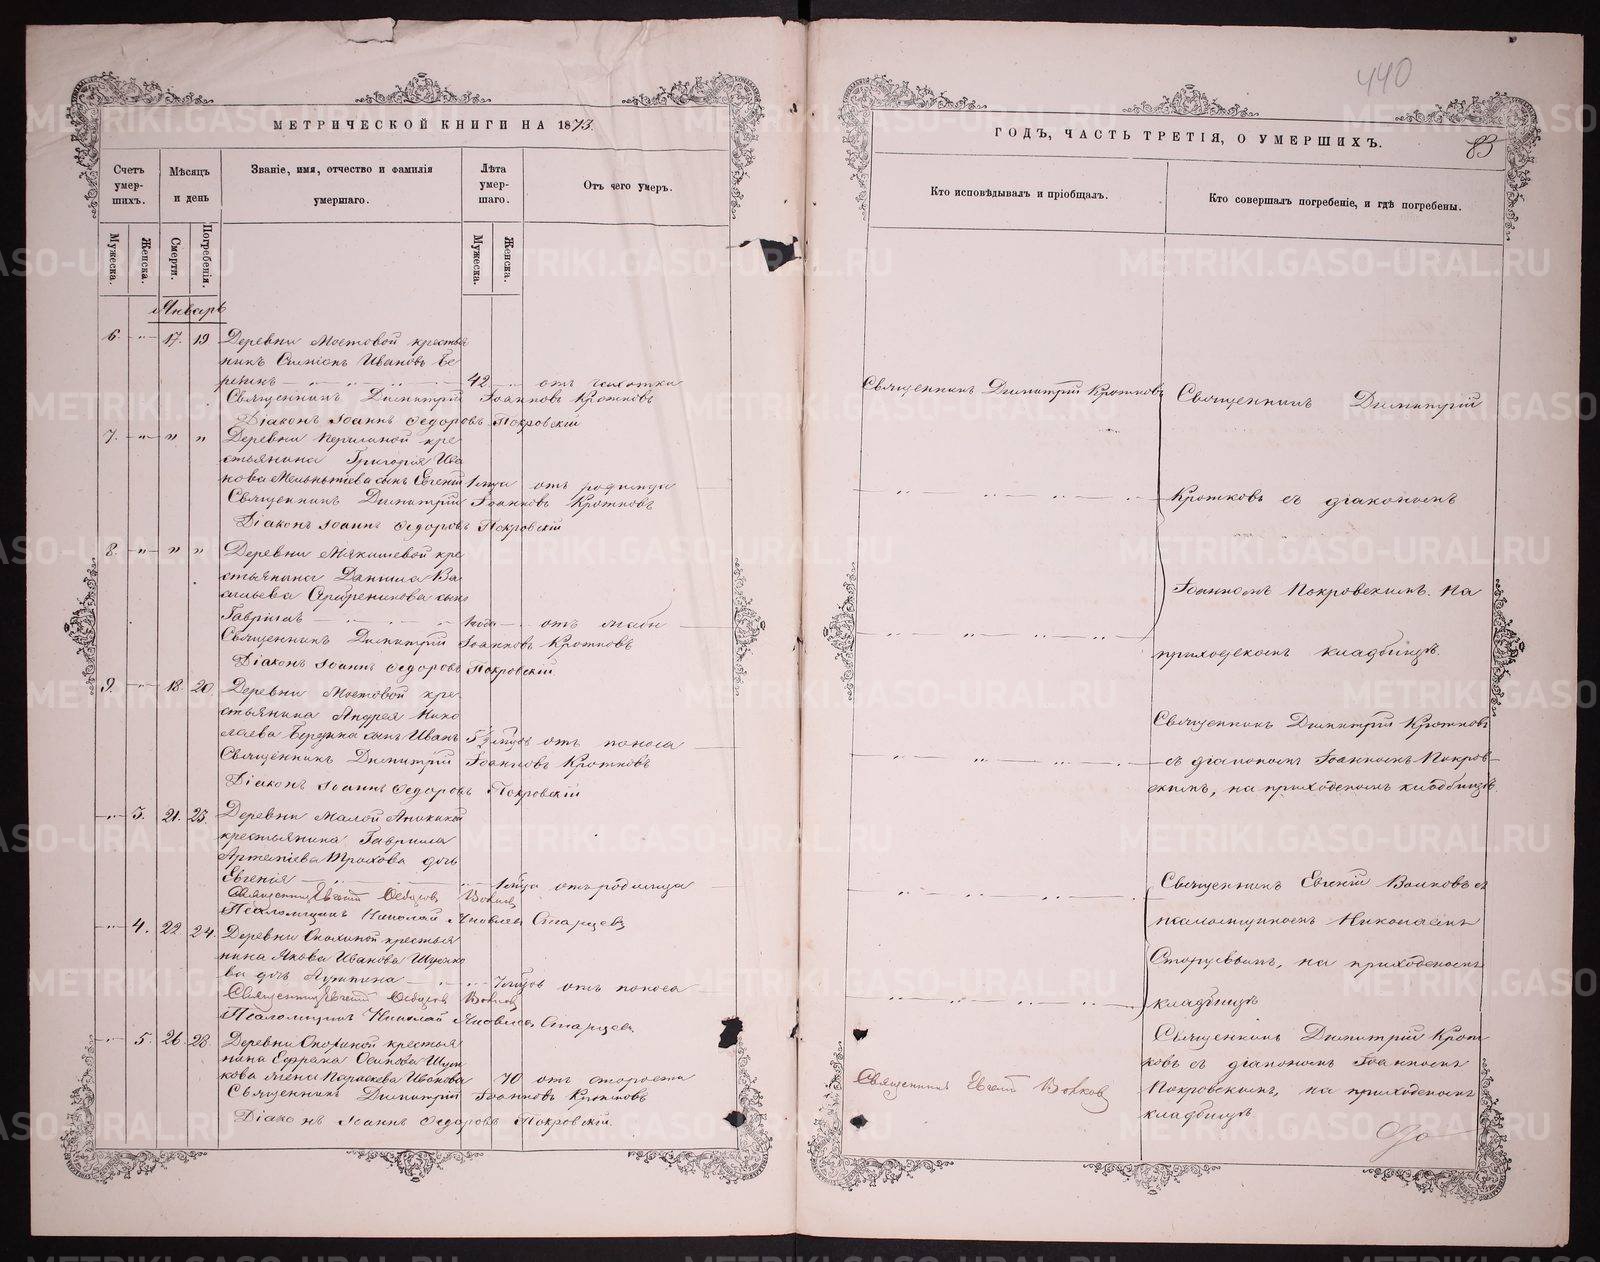 МЕТРИЧЕСКОЙ КНИГИ НА 1873.
Счетъ умер-шихъ.
Мѣсяцъ и день
Званіе, имя, отчество и фамилія умершаго.
Лѣта умер-шаго.
Отъ чего умеръ.
Мужеска.
Женска.
Смерти.
Погребенія.
Мужеска.
Женска.
Январь
6. " 17. 19 Деревни Мостовой крестья
нинъ Ивановъ Бе
42 " отъ чахотки
Священникъ Димитрій Іоанновъ Кротковъ
Діаконъ Іоаннъ Ѳедоровъ Покровскій
7. " " " Деревни кре
стьянина Григорія Ива
нова сынъ Евгеній 1 отъ родимца
Священникъ Димитрій Іоанновъ Кротковъ
Діаконъ Іоаннъ Ѳедоровъ Покровскій
8. " " " Деревни Мякишевой кре
стьянина Даніила Ва
сильева сынъ
Гавріилъ 1 года отъ
Священникъ Димитрій Іоанновъ Кротковъ
Діаконъ Іоаннъ Ѳедоровъ Покровскій
9. " 18. 20. Деревни Мостовой кре
стьянина Андрея Нико
лаева сынъ Иванъ 5 ½ отъ поноса
Священникъ Димитрій Іоанновъ Кротковъ
Діаконъ Іоаннъ Ѳедоровъ Покровскій
" 3. 21. 23. Деревни Малой
крестьянина Гавріила
дочь
Евгенія 1 отъ родимца
Священникъ Евгеній Волковъ
Псаломщикъ Николай Яковлевъ Старцевъ
" 4. 22. 24. Деревни крестья
нина Якова Иванова
ва дочь 7 отъ поноса
Священникъ Евгеній Волковъ
Псаломщикъ Николай Яковлевъ Старцевъ
" 5. 26. 28 Деревни крестья
нина Ефрема Осипова
кова жена Параскева Иванова 70 отъ старости
Священникъ Димитрій Іоанновъ Кротковъ
Діаконъ Іоаннъ Ѳедоровъ Покровскій.
440
ГОДЪ, ЧАСТЬ ТРЕТІЯ, О УМЕРШИХЪ.
83
Кто исповѣдывалъ и пріобщалъ.
Кто совершалъ погребеніе, и гдѣ погребены.
Священникъ Димитрій Кротковъ
Священникъ Димитрій
Кротковъ съ діакономъ
Іоанномъ Покровскимъ. На
приходскомъ кладбищѣ.
Священникъ Димитрій Кротковъ
съ діакономъ Іоанномъ Покров-
скимъ, на приходскомъ кладбищѣ.
Священникъ Евгеній Волковъ съ
псаломщикомъ Николаемъ
Старцевымъ, на приходскомъ
кладбищѣ
Священникъ Евгеній Волковъ
Священникъ Димитрій Крот
ковъ съ діакономъ Іоанномъ
Покровскимъ, на приходскомъ
кладбищѣ.
METRIKI.GASO-URAL.RU